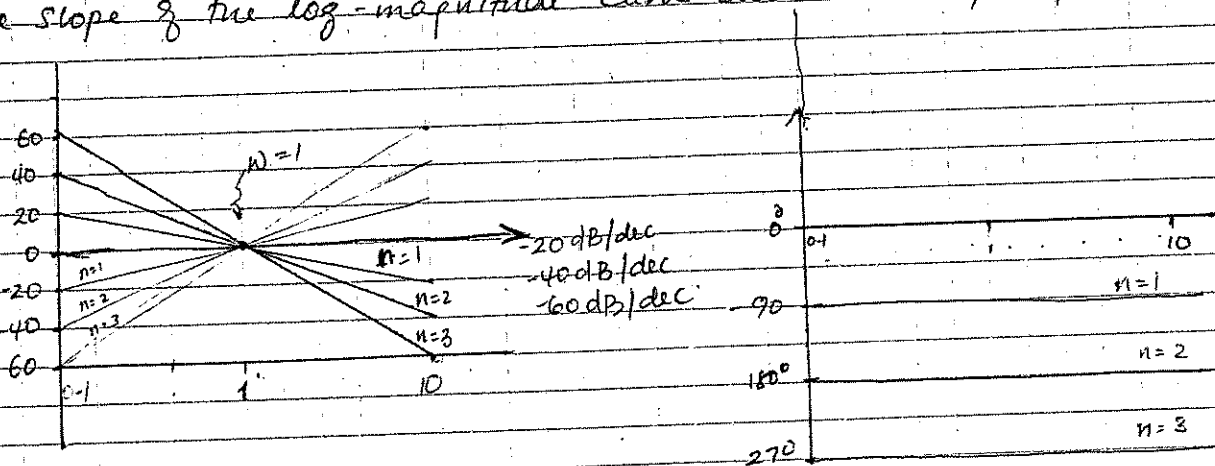 slope of the log-magnitude
60
40
20
0
-20
-40
-60
0.1
1
10
W=1
n=1
n=2
n=3
n=1
n=2
n=3
-20 dB/dec
-40 dB/dec
-60 dB/dec
0
0.1
1
10
-90
180°
270
n=1
n=2
n=3